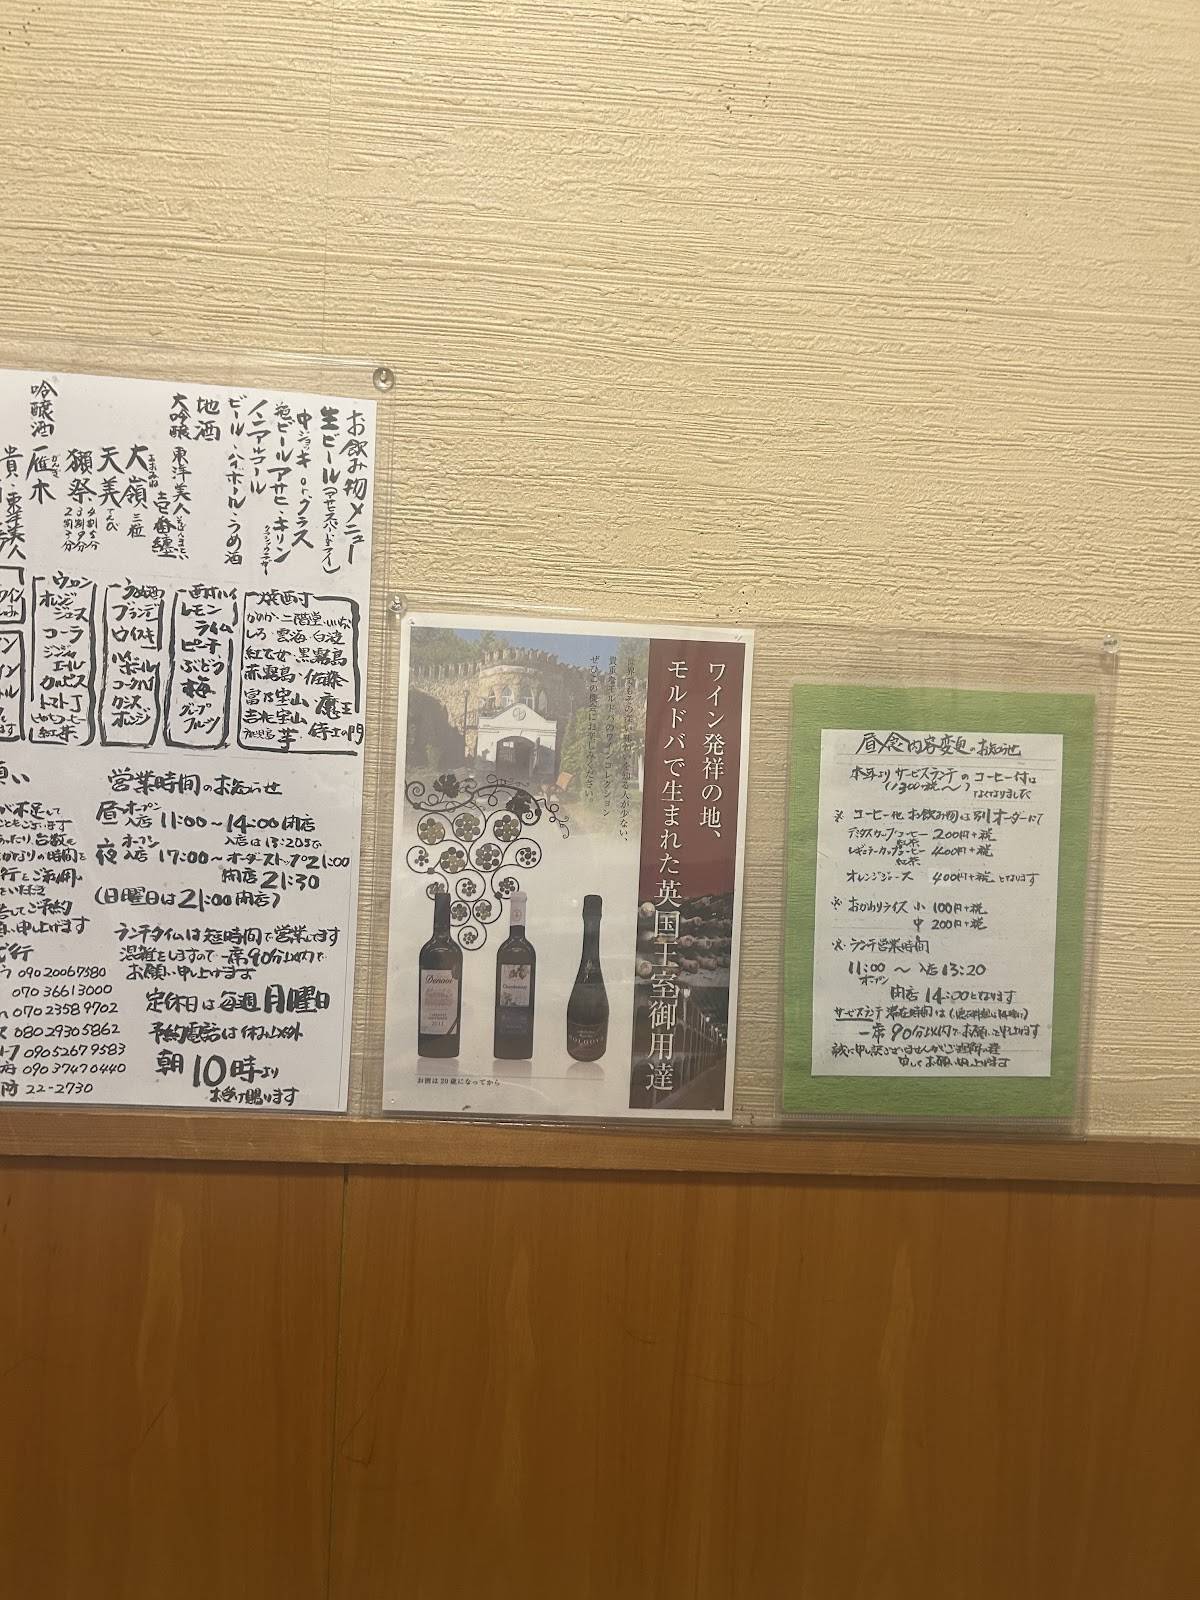 お飲み物メニュー
生ビール(アサヒスーパードライ)
中ジョッキ or グラス
瓶ビール アサヒ・キリン
クラシックラガー
ノンアルコール
ビール・ハイボール・うめ酒
地酒
大吟醸 東洋美人 壱番纏
大嶺 三粒
天美
獺祭
吟醸酒 雁木
東洋美人
焼酎
かのか・二階堂・いいちこ
しろ・雲海・白波
紅乙女・黒霧島
赤霧島・佐藤
富乃宝山 魔王
吉兆宝山
侍士の門
酎ハイ
レモン
ライム
ピーチ
ぶどう
梅
グレープ
フルーツ
うめ酒
ブランデー
ウイスキー
ハイボール
コークハイ
カシス
オレンジ
ウーロン
オレンジ
ジュース
コーラ
ジンジャ
エール
カルピス
トマトJ
紅茶
営業時間のお知らせ
昼 オープン 入店 11:00〜14:00 閉店
入店は13:20まで
夜 オープン 入店 17:00〜オーダーストップ21:00
閉店21:30
(日曜日は21:00閉店)
ランチタイムは短時間で営業してます
混雑をしますので一席90分以内で
お願い申し上げます
定休日は毎週月曜日
予約電話は休み以外
朝10時より
お受け賜ります
09020067580
070 3661 3000
070 2358 9702
080 2930 5862
090 5267 9583
090 3747 0440
22-2730
ワイン発祥の地、
モルドバで生まれた英国王室御用達
世界でもその深い味わいを知る人が少ない、
貴重なモルドバのワインコレクション
ぜひこの機会にお楽しみください。
Denovi
Chardonnay
MOLDOVA
お酒は20歳になってから
昼食内容変更のお知らせ
本年よりサービスランチのコーヒー付は
(1300+税〜) なくなりました
※ コーヒー他お飲み物は別オーダーにて
デミタスカップコーヒー 200円+税
紅茶
レギュラーカップコーヒー 400円+税
紅茶
オレンジジュース 400円+税となります
※ おかわりライス 小 100円+税
中 200円+税
※ ランチ営業時間
11:00 〜 入店13:20
オープン
閉店 14:00となります
サービスランチ滞在時間は
一席90分以内でお願い申し上げます
誠に申し訳ございませんがご理解の程
宜しくお願い申し上げます